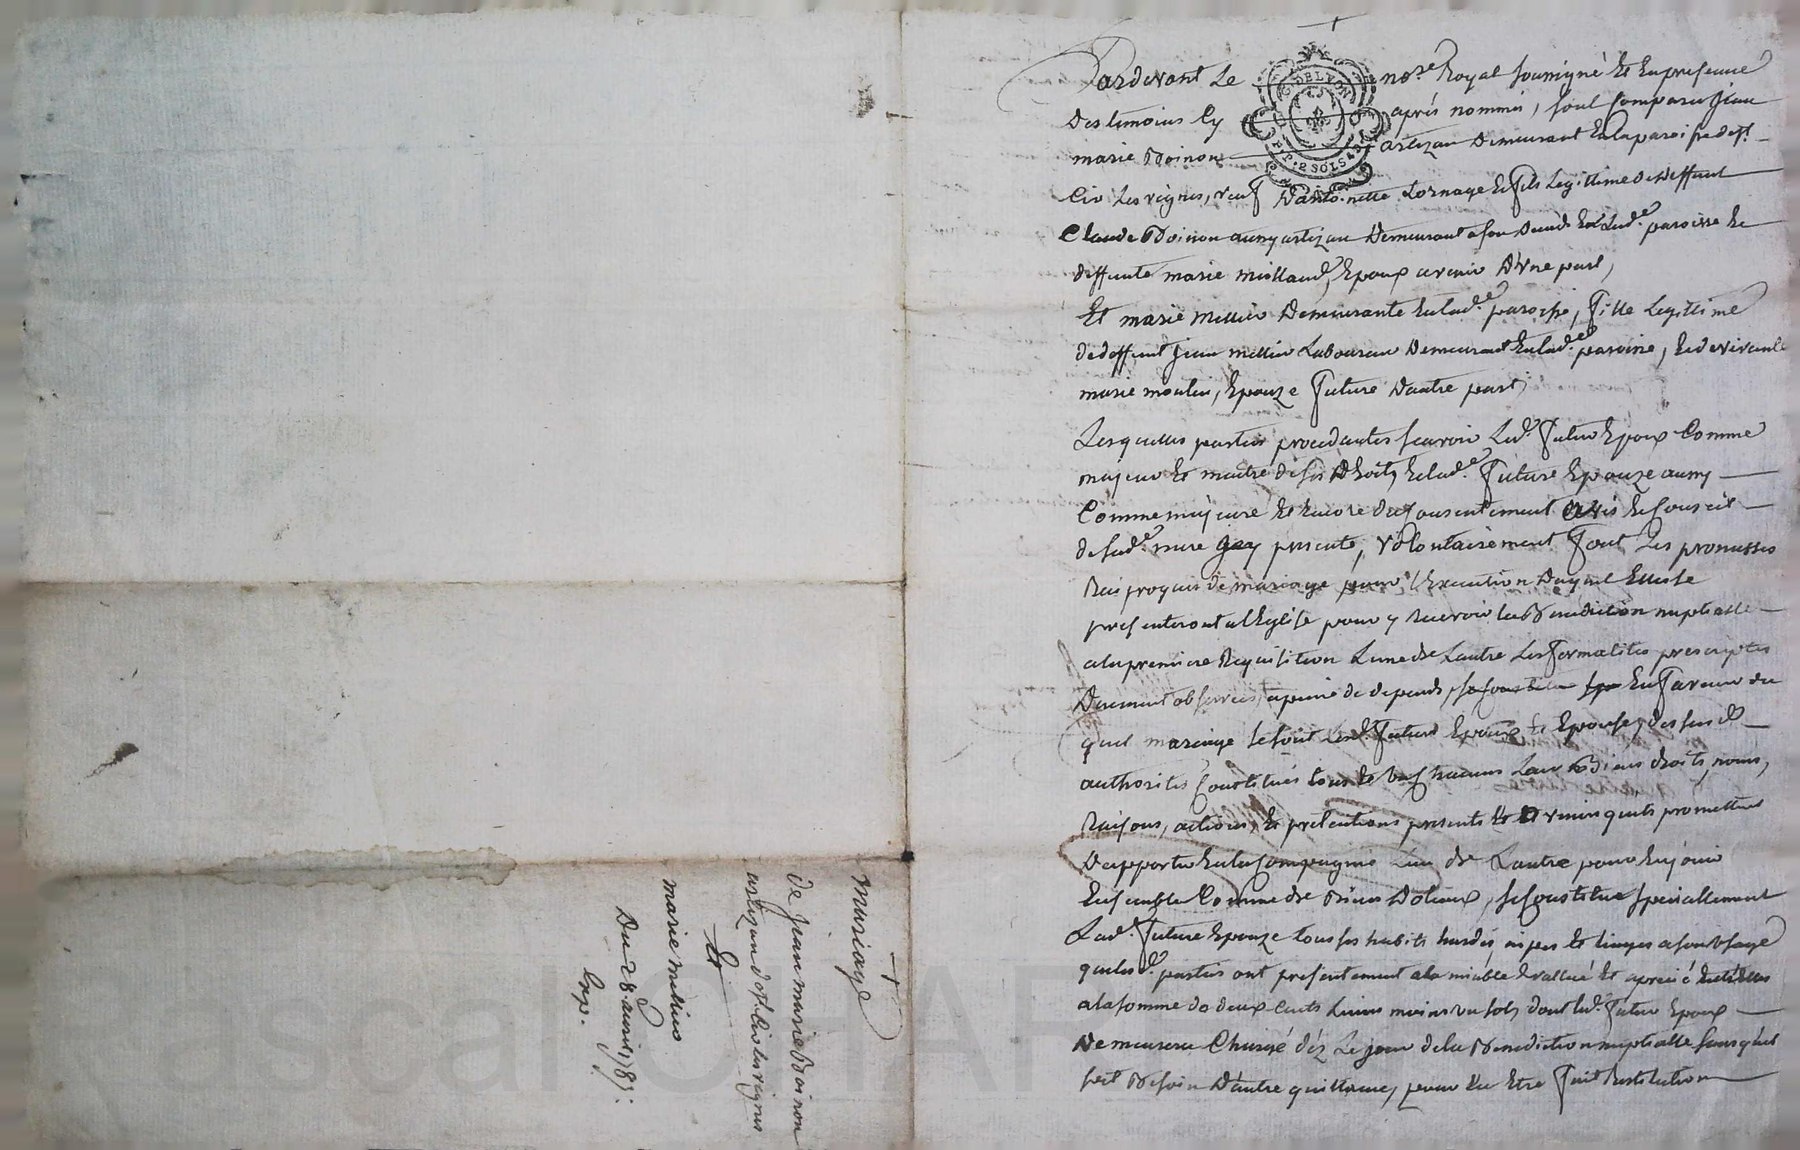 Pardevant Le no.re Royal soussigné et En presence
Des temoins Cy après nommés, sont comparu Jean
marie Boinon artizan Demeurant En la paroisse de St.
Cir Les vignes, veuf D'antoinette Lornage et fils Legittime de deffunt
Claude Boinon aussy artizan Demeurant a son Decéds En Lad.e paroisse Et
deffunte marie Millaud, Epoux avenir D'vne part,
Et marie mellier Demeurante En lad.e paroisse, fille Legittime
de deffunt Jean mellier Laboureur Demeurant En lad.e paroisse, Et de vivante
marie moulin, Epouze future D'autre part,
Lesquelles parties procedantes scavoir Led. futur Epoux Comme
majeur Et maitre de ses Droits Et lad.e future Epouze aussy
Comme majeure Et Encore du Consentement avis Et Conseil
de sad.e mere icy presente, volontairement font Les promesses
Reciproques de mariage pour l'Execution Duquel Elles se
presenteront a l'Eglise pour y Recevoir la Benediction nuptialle
a la premiere Requisition L'une de L'autre Les formalités prescriptes
Duement observées, a peine de depends, En faveur du
quel mariage se sont Lesd. futurs Epoux Et Epouse, desd.
authorités Constitués tous Et Chacuns Leurs Biens droits, noms,
Raisons, actions, Et prétentions presents Et a venir quils promettent
D'apporter En la Compagnie L'un de L'autre pour En jouir
Ensemble Comme de Biens Dotaux, se Constitue specialement
Lad.e future Epouze tous ses habits hardes nipes Et linges a son Usage
que lesd. parties ont presentement a la miable Evallué Et aprecié
a la somme de deux Cents Livres moins un sol, dont led. futur Epoux
Demeurera Chargé dèz Le jour de la Benediction nuptialle sans qu'il
soit Besoin D'autre quittance, pour En Etre fait Restitution
mariage
de Jean marie Boinon
artizan de St. Cir les vignes
Et
marie mellier
Du 28 avril 1787:
Exp.
G. DE LYON
P. P. 2 SOLS 4 D.